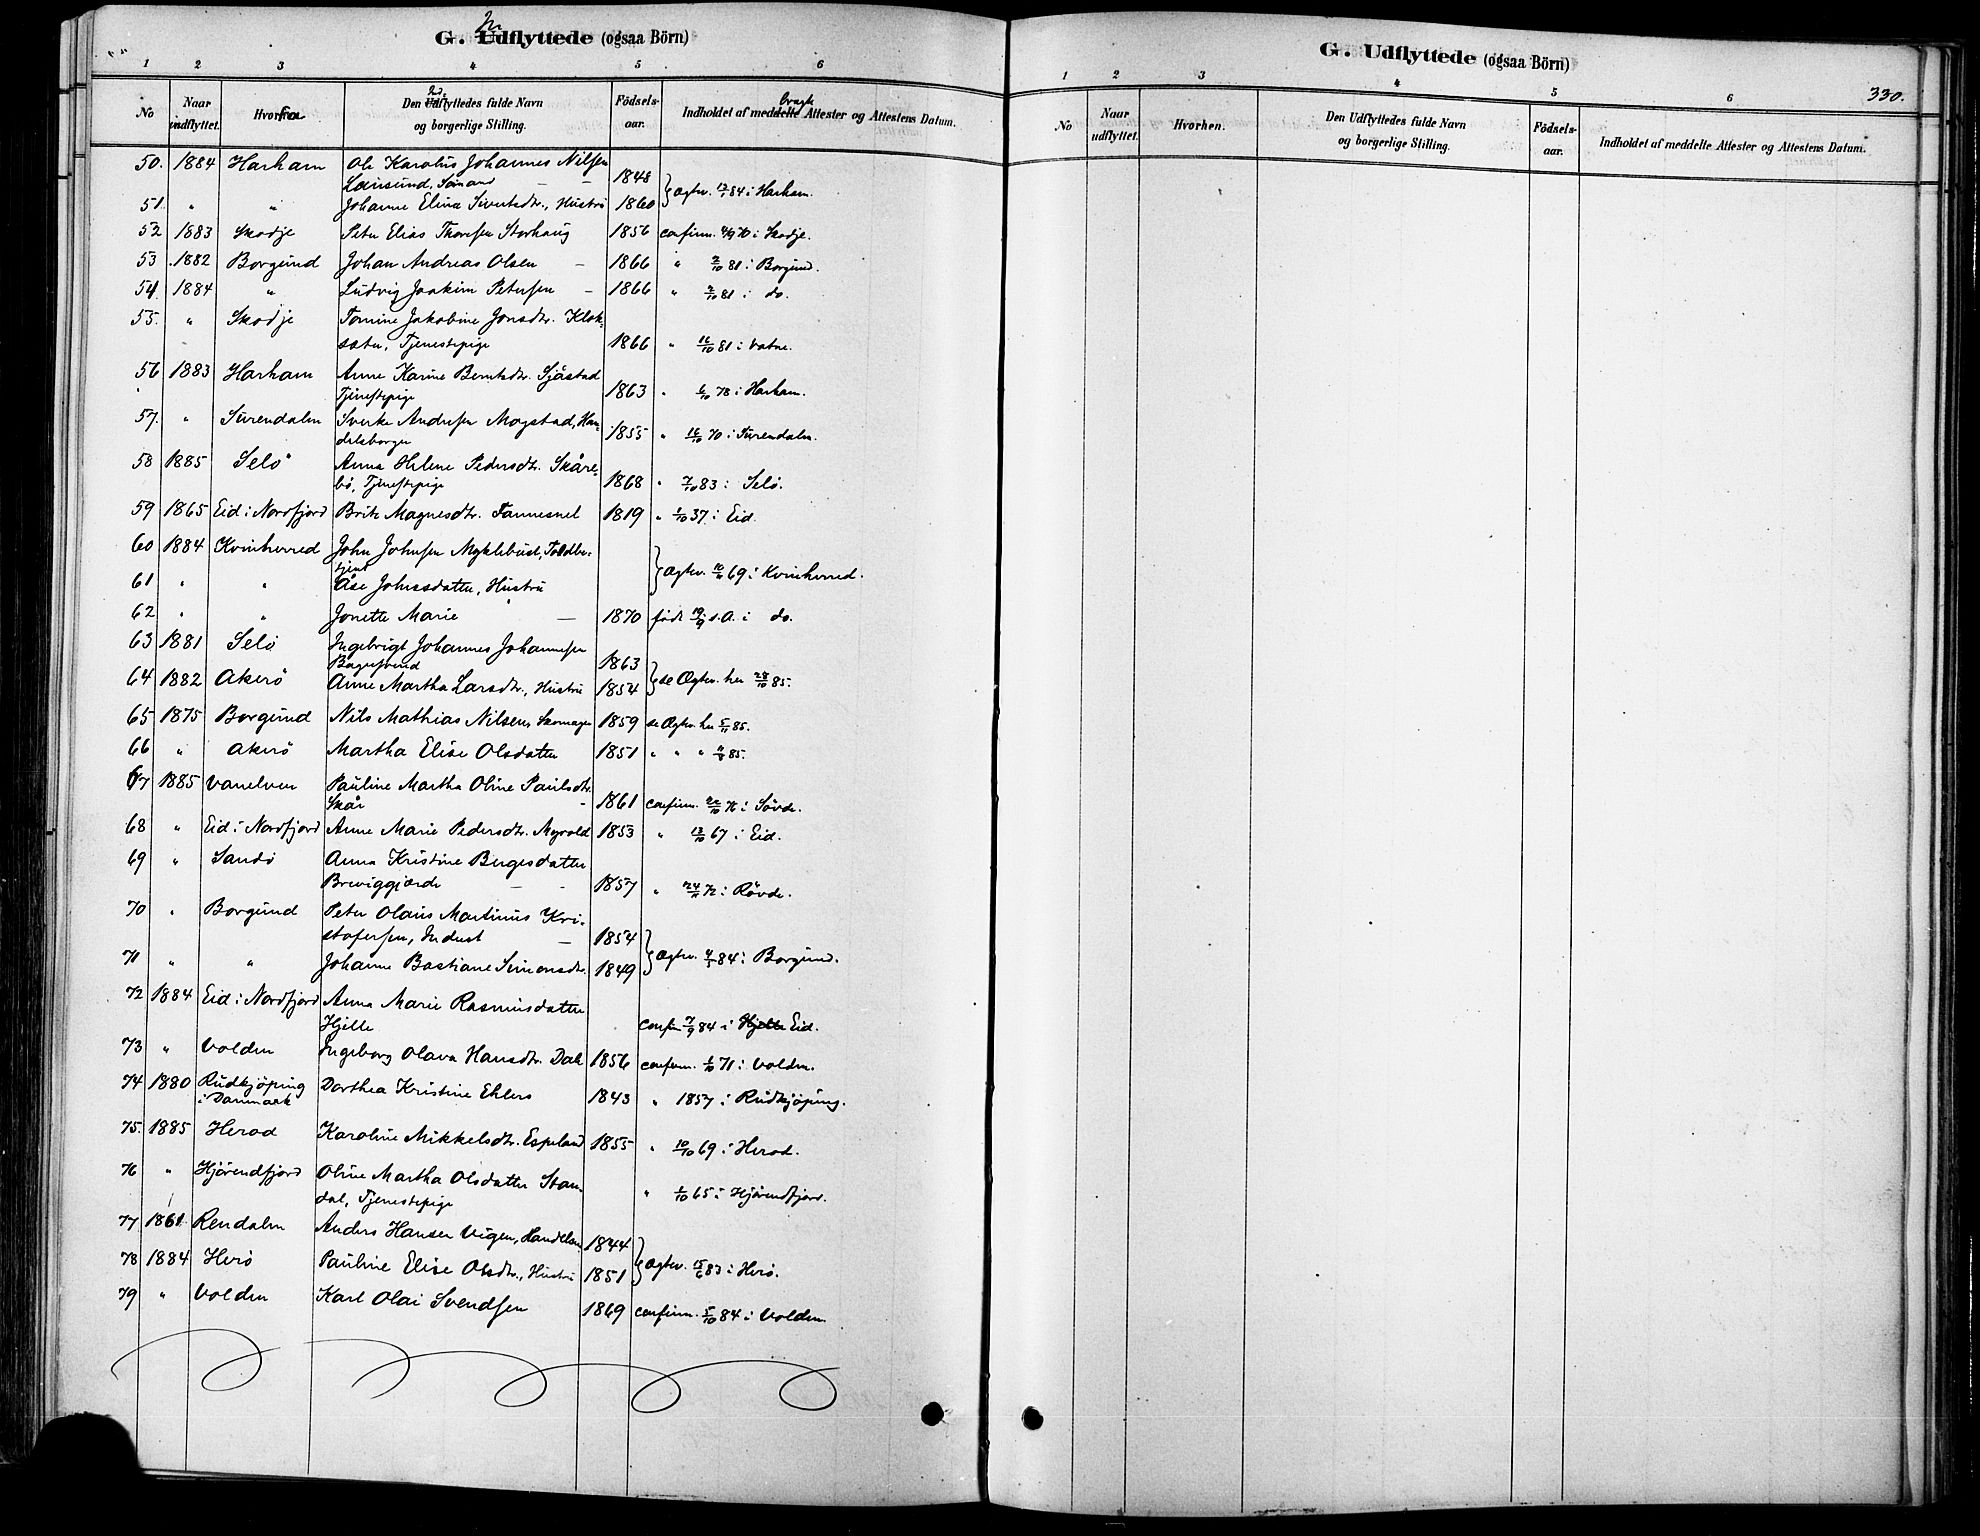 G. Indflyttede (ogsaa Börn)
1 2 3 4 5 6
No Naar indflyttet. Hvorfra Den Indflyttedes fulde Navn og borgerlige Stilling. Födsels-aar. Indholdet af bragte Attester og Attestens Datum.
50. 1884 Harham Ole Karolus Johannes Nilsen
Sömand 1848
} Ægtev. 84 i Harham.
51. " " Johanne Elina Sivertsdtr., Hustru 1860
52 1883 Skodje Peter Elias Thoresen Storhaug 1856 confirm. 4/9 70 i Skodje.
53 1882 Borgund Johan Andreas Olsen - 1866 " 2/10 81 i Borgund.
54. 1884 " Ludvig Joakim Petersen - 1866 " 2/10 81 i do.
55. " Skodje Tomine Jakobine Jonsdtr. Klok-
sæter, Tjenestepige 1866 " 16/10 81 i Vatne.
56 1883 Harham Anne Karine Berntsdtr. Sjåstad
Tjenestepige 1863 " 6/10 78 i Harham.
57. " Surendalen Sverke Andersen Mogstad, Han-
delsborger 1855 " 16/10 70 i Surendalen.
58 1885 Selö Anna Helene Pedersdtr. Skåre-
bö, Tjenestepige 1868 " 7/10 83 i Selö.
59 1865 Eid i Nordfjord Brite Magnesdtr. Tannesnel 1819 " 1/10 37 i Eid.
60 1884 Kvinherred John Johnsen Myklebust, Toldbe-
tjent
} Ægtev. 69 i Kvinherred.
61 " " Åse Johnsdatter, Hustru
62 " " Jonette Marie - 1870 født 19/9 s.A. i do.
63 1881 Selö Ingebrigt Johannes Johannesen
Bagersvend 1863
} se Ægtev. her 28/10 85.
64 1882 Akerö Anne Martha Larsdtr., Hustru 1854
65 1875 Borgund Nils Mathias Nilsen, Skomager 1859 se Ægtev. her 5/11 85.
66 " Akerö Martha Elise Olsdatter 1851 " " " 85.
67 1885 Vanelven Pauline Martha Oline Paulsdtr.
Skår - 1861 confirm. 22/10 76 i Sövde.
68 " Eid i Nordfjord Anne Marie Pedersdtr. Myrold 1853 " 13/10 67 i Eid.
69 " Sandö Anna Kristine Bergesdatter
Breviggjerde - - 1857 " 72 i Rövde.
70 " Borgund Peter Olaus Martinus Kri-
stofersen, Indust - 1854
} Ægtev. 84 i Borgund.
71 " " Johanne Bastiane Simonsdtr. 1849
72 1884 Eid i Nordfjord Anna Marie Rasmusdatter
Hjelle confirm 7/9 84 i Hjelle Eid.
73 " Volden Ingeborg Olava Hansdtr. Dale 1856 confirm. 1/10 71 i Volden.
74 1880 Rudkjöping
i Danmark Dorthea Kristine Ehlers 1843 " 1857 i Rudkjöping.
75. 1885 Herad Karoline Mikkelsdtr. Espeland 1855 " 10/10 69 i Herad.
76 " Hjörendfjord Oline Martha Olsdatter Stan-
dal, Tjenestepige " 1/10 65 i Hjörendfjord.
77 1861 Rendalen Anders Hansen Vigen, Handelsm. 1844
} Ægtev. 15/6 83 i Herö.
78 1884 Herö Pauline Elise Olsdtr., Hustru 1851
79 " Volden Karl Olai Svendsen 1869 confirm. 5/10 84 i Volden
G. Udflyttede (ogsaa Börn)
330.
1 2 3 4 5 6
No Naar udflyttet. Hvorhen. Den Udflyttedes fulde Navn og borgerlige Stilling. Födsels-aar. Indholdet af meddelte Attester og Attestens Datum.